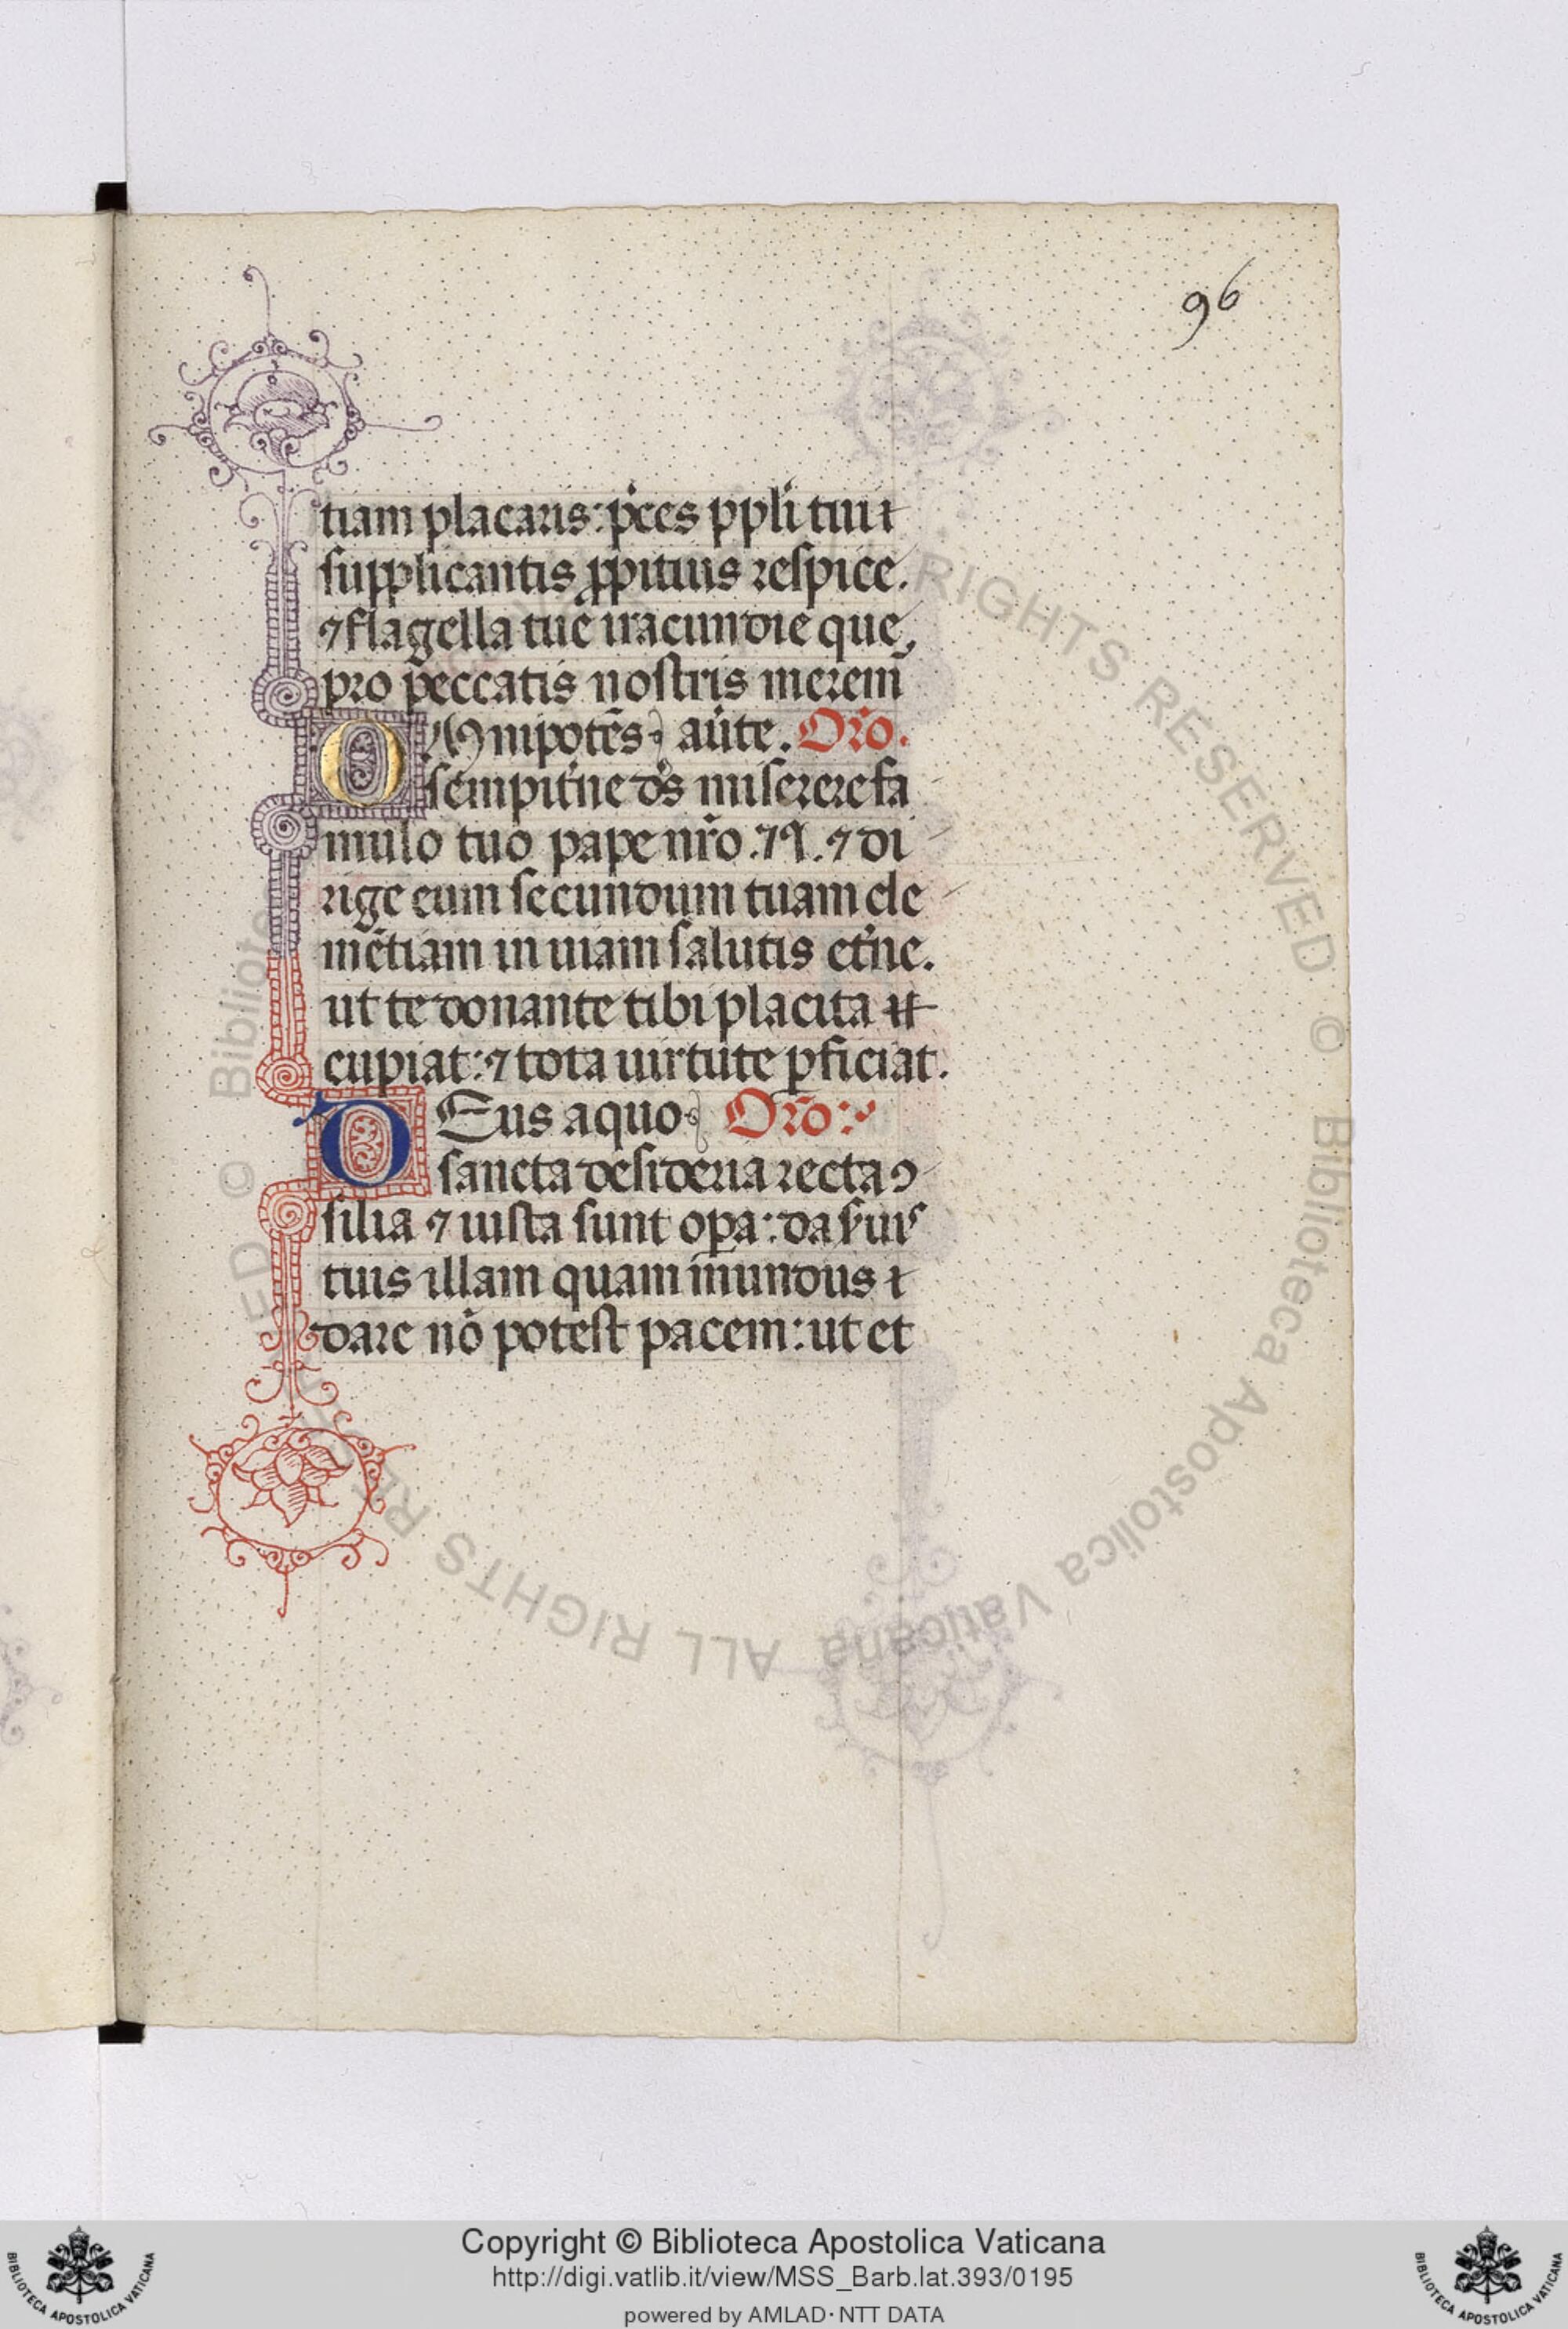 96
tiam placaris: p̾ces ppl̾i tui
supplicantis ꝓpitius respice.
⁊ flagella tue iracundie que,
pro peccatis nostris merem̃
OMnipotẽs auẽte. Or̃o.
sempit̾ne ds̾ miserere fa
mulo tuo pape nr̃o .N. ⁊ di
rige eum secundum tuam cle
mẽtiam in uiam salutis et̾ne.
ut te donante tibi placita
cupiat: ⁊ tota uirtute ꝑficiat.
DEus a quo Or̃o:
sancta desideria recta ꝯ
silia ⁊ iusta sunt oꝑa: da s̾uis
tuis illam quam mundus
dare nõ potest pacem: ut et
© Biblioteca Apostolica Vaticana ALL RIGHTS RESERVED © Biblioteca RIGHTS RESERVED
Copyright © Biblioteca Apostolica Vaticana
http://digi.vatlib.it/view/MSS_Barb.lat.393/0195
powered by AMLAD·NTT DATA
BIBLIOTECA APOSTOLICA VATICANA
BIBLIOTECA APOSTOLICA VATICANA